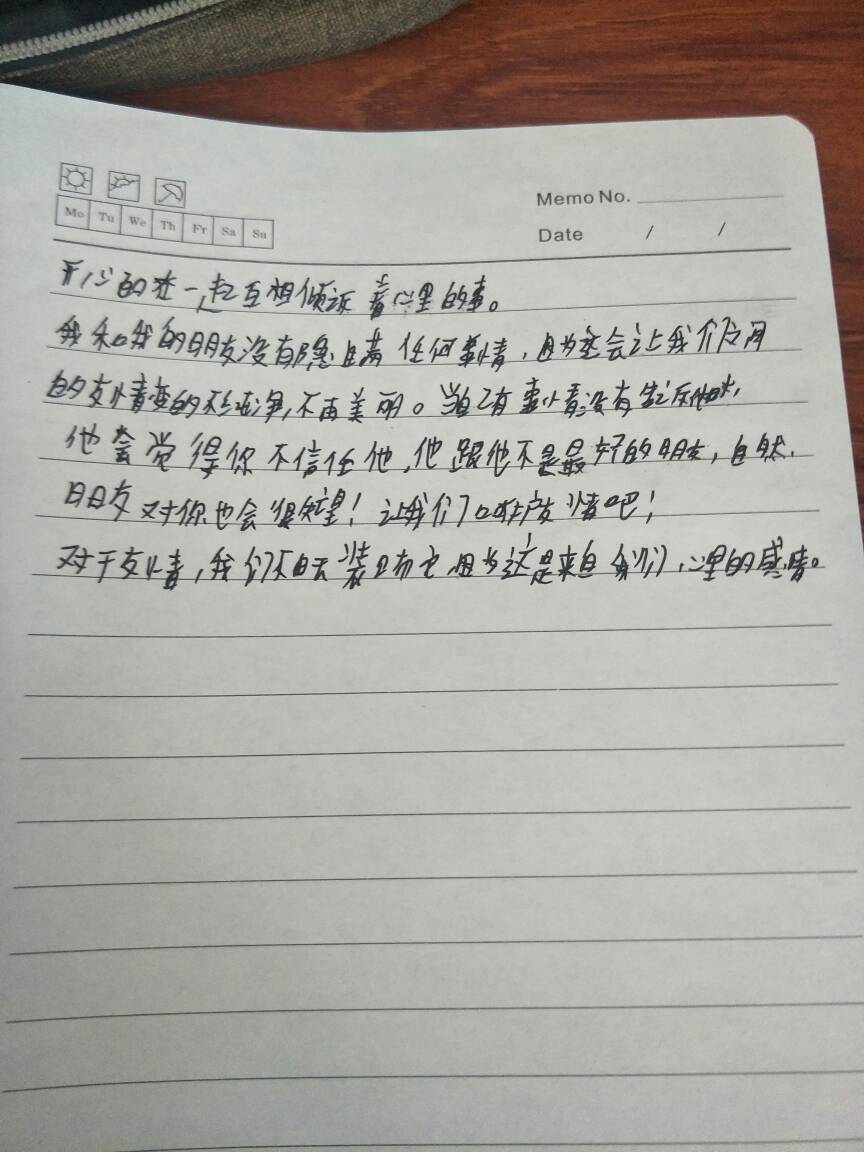 Memo No.
Mo Tu We Th Fr Sa Su
Date / /
开心的在一起互相倾诉着心里的事。
我和我的朋友没有隐瞒任何事情，因为这会让我们之间
的友情变的不纯净，不再美丽。当你有事情没有告诉他时，
他会觉得你不信任他，他跟他不是最好的朋友，自然，
朋友对你也会很失望！让我们口友情吧！
对于友情，我们不口去装口它因为这是来自我们心里的感情。